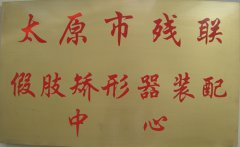 太原市残联
假肢矫形器装配
中心